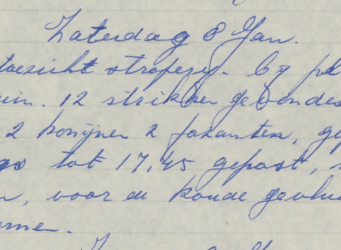 Zaterdag 8 Jan.
toezicht stroperij. Bij
12 strikken gevonden
2 konijnen 2 fazanten,
tot 17,45 gepost,
voor de koude gevlu